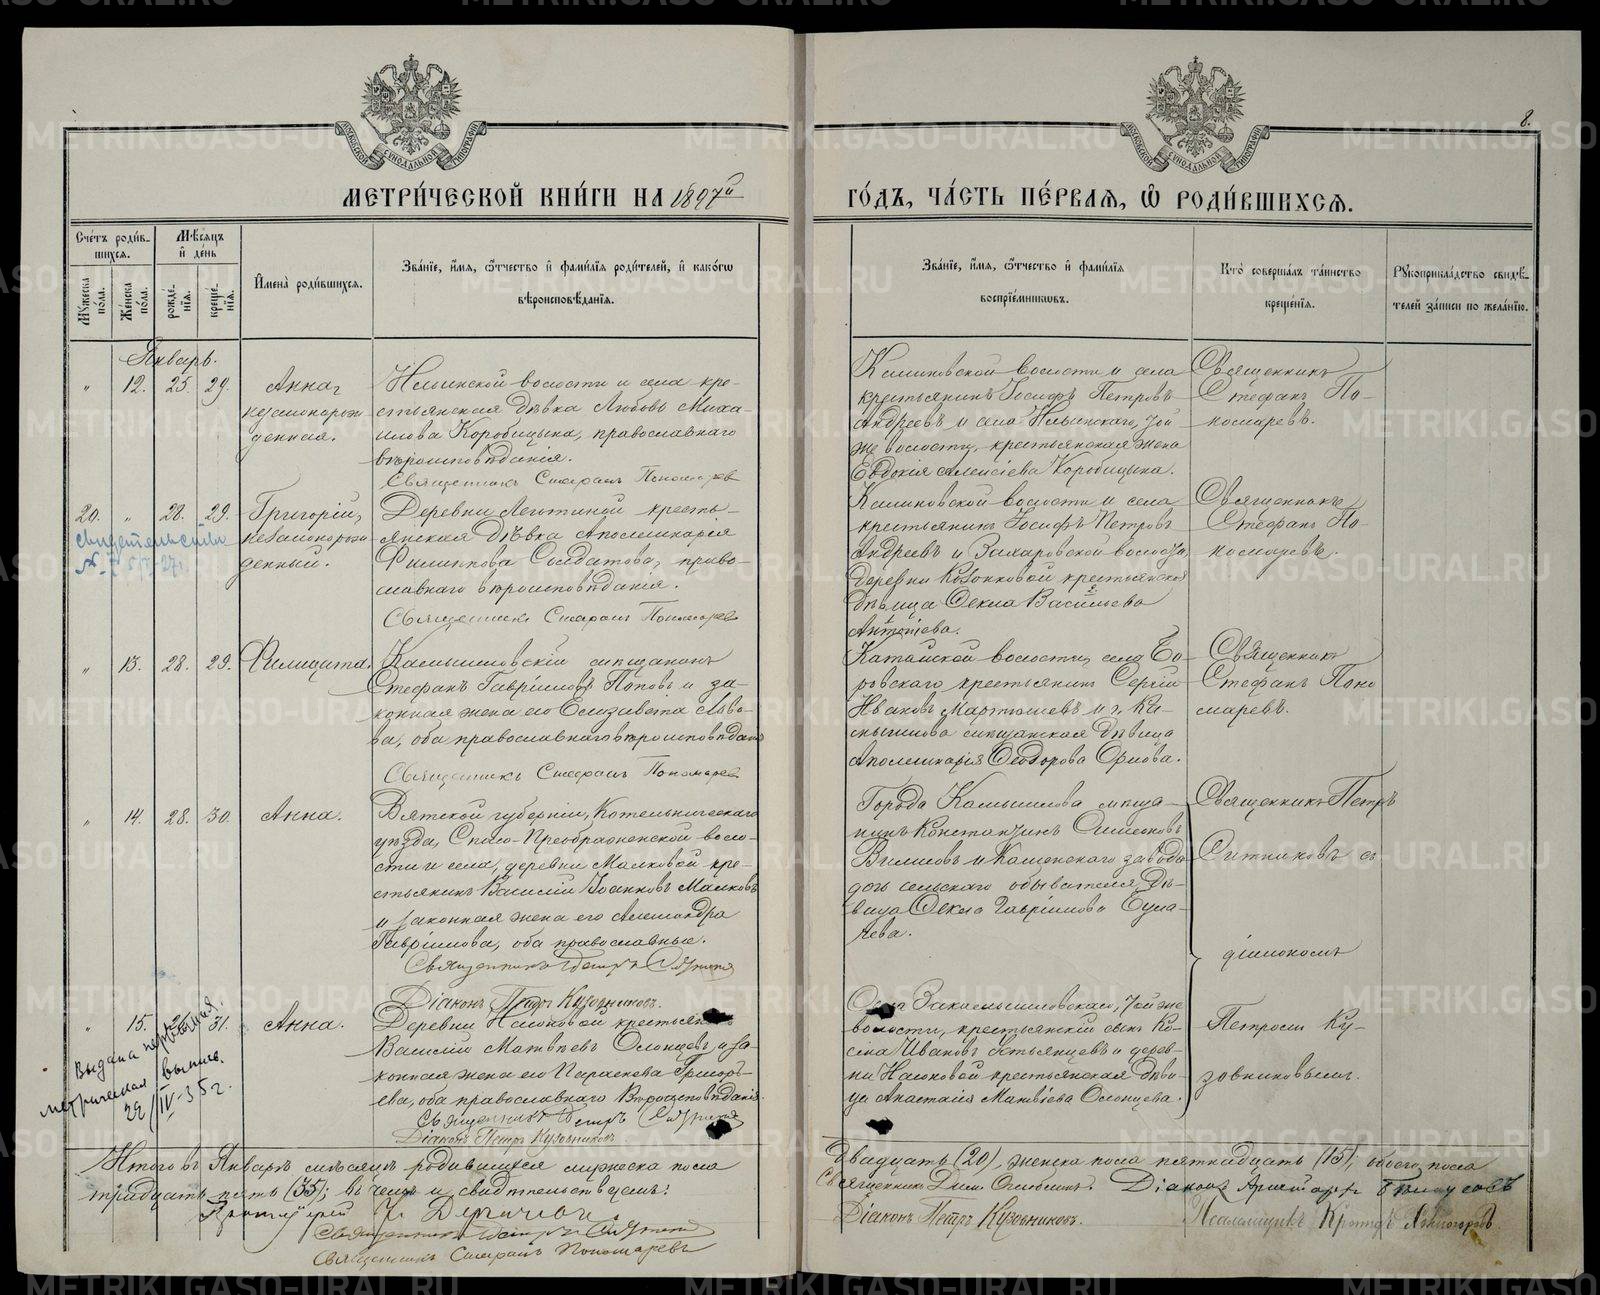 8.
МЕТРИ́ЧЕСКОЙ КНИ́ГИ НА 1897й
ГО́ДЪ, ЧА́СТЬ ПЕ́РВАЯ, Ѽ РОДИ́ВШИХСЯ.
МОСКОВСКОЙ СѴНОДАЛЬНОЙ ТИПОГРАФІИ
МОСКОВСКОЙ СѴНОДАЛЬНОЙ ТИПОГРАФІИ
Сче́тъ роди́в-
шихся.
Му́жеска по́ла.
Же́нска по́ла.
Мѣ́сяцъ и҆ де́нь
рожде́нїѧ.
креще́нїѧ.
И҆мена̀ роди́вшихся.
Зва́нїе, и҆́мя, ѻ҆́тчество и҆ фами́лїя роди́телей, и҆ како́гѡ
вѣроисповѣ́данїя.
Зва́нїе, и҆́мя, ѻ҆́тчество и҆ фами́лїя
воспрїе́мникѡвъ.
Кто̀ соверша́лъ та́инство
креще́нїя.
Рꙋкоприкла́дство свидѣ́-
телей за́писи по жела́нїю.
Январь.
" 12. 25. 29. Анна,
незаконорож
денная.
Ильинской волости и села кре-
стьянская дѣвка Любовь Миха-
илова Коробицына, православнаго
вѣроисповѣданія.
Священникъ Стефанъ Пономарев
Калиновской волости и села
крестьянинъ Іосифъ Петровъ
Андреевъ и села Ильинскаго, той
же волости, крестьянская жена
Евдокія Алексіева Коробицына.
Священникъ
Стефанъ По-
номаревъ.
20. " 28. 29. Григорій,
незаконорож
денный.
свидетельство
Деревни Леготиной кресть-
янская дѣвка Аполлинарія
Филиппова Солдатова, право-
славнаго вѣроисповѣданія.
Священникъ Стефанъ Пономарев
Калиновской волости и села
крестьянинъ Іосифъ Петровъ
Андреевъ и Захаровской волости,
деревни Козонковой крестьянская
дѣвица Ѳекла Васильева
Антипіева.
Священникъ
Стефанъ По-
номаревъ.
" 13. 28. 29. Филицита.
Камышловскій мѣщанинъ
Стефанъ Гавріиловъ Поповъ и за-
конная жена его Елизавета Льво-
ва, оба православнаго вѣроисповѣданія
Священникъ Стефанъ Пономарев
Катайской волости, села Бо-
ровскаго крестьянинъ Сергій
Ивановъ Мартюшевъ и г. Ка-
мышлова мѣщанская дѣвица
Аполлинарія Ѳеодорова Орлова.
Священникъ
Стефанъ Поно
маревъ.
" 14. 28. 30. Анна.
Вятской губерніи, Котельническаго
уѣзда, Спасо-Преображенской воло-
сти и села, деревни Малковой кре-
стьянинъ Василій Іоанновъ Малковъ
и законная жена его Александра
Гавріилова, оба православные.
Священникъ Петръ Ситниковъ
Діаконъ Петръ Кузовниковъ.
Города Камышлова мѣща-
нинъ Константинъ Симеоновъ
и Каменскаго завода
дочь сельскаго обывателя, дѣ-
вица Ѳекла Гавріилова
Священникъ Петръ
Ситниковъ съ
діакономъ
Петромъ Ку-
зовниковымъ.
" 15. 31. Анна.
Деревни Насоновой крестьянинъ
Василій Матвѣевъ Олонцевъ и за-
конная жена его Параскева Григорь-
ева, оба православнаго вѣроисповѣданія.
Священникъ Петръ Ситниковъ
Діаконъ Петръ Кузовниковъ
Села Закамышловскаго, той же
волости, крестьянскій сынъ Ко-
сма Ивановъ и дерев-
ни Насоновой крестьянская дѣви-
ца Анастасія Матвѣева Олонцева.
Выдана
метрическая выпис.
22/IV-35 г.
Итого въ Январѣ мѣсяцѣ родившихся мужеска пола
двадцать (20), женска пола пятнадцать (15); обоего пола
тридцать пять (35); въ чемъ и свидѣтельствуемъ:
Протоіерей
Священникъ Петръ Ситниковъ
Священникъ Стефанъ Пономаревъ
Священникъ
Діаконъ
Діаконъ Петръ Кузовниковъ.
Псаломщикъ
METRIKI.GASO-URAL.RU